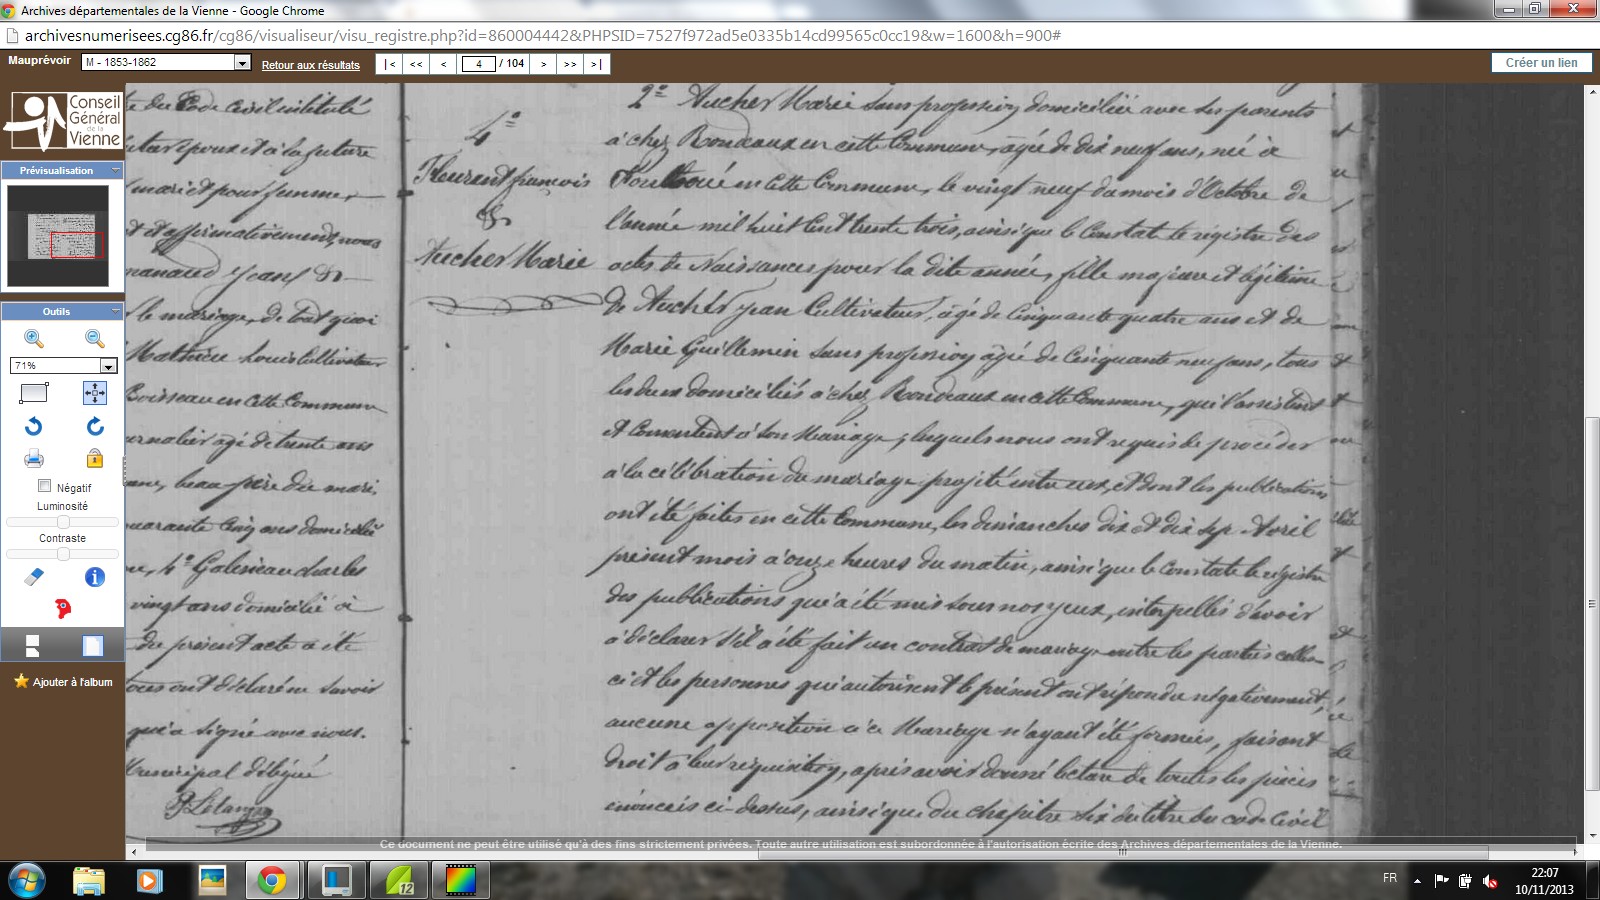 Archives départementales de la Vienne - Google Chrome
archivesnumerisees.cg86.fr/cg86/visualiseur/visu_registre.php?id=860004442&PHPSID=7527f972ad5e0335b14cd99565c0cc19&w=1600&h=900#
Mauprévoir
M - 1853-1862
Retour aux résultats
|< << < 4 / 104 > >> >|
Créer un lien
Conseil
Général
de la
Vienne
Prévisualisation
Outils
71%
Négatif
Luminosité
Contraste
Ajouter à l'album
du Code civil institulé
époux et à la future
mari et pour femme
et affirmativement, nous
Jean &
le mariage, de tout quoi
Louis cultivateur
Boisseau en cette Commune
journalier âgé de trente ans
beau père du mari,
quarante cinq ans domicilié
4° Galineau charles
vingt ans domicilié à
du présent acte a été
ont déclaré ne savoir
qui a signé avec nous.
municipal délégué
4°
Fleurant françois
&
Aucher Marie
2° Aucher Marie sans profession, domiciliée avec ses parents
à chez Rondeaux en cette Commune, âgée de dix neuf ans, née à
en cette Commune, le vingt neuf du mois d'Octobre de
l'année mil huit cent trente trois, ainsi que le Constate le registre des
actes de Naissances pour la dite année, fille majeure et légitime
de Aucher Jean Cultivateur, âgé de Cinquante quatre ans et de
Marie Guillemin sans profession âgée de Cinquante neuf ans, tous
les deux domiciliés à chez Rondeaux en cette Commune, qui l'assistent
et Consentent à son Mariage; lesquels nous ont requis de procéder
à la célébration du mariage projeté entre eux, et dont les publications
ont été faites en cette Commune, les dimanches dix et dix sept Avril
présent mois à onze heures du matin, ainsi que le constate le registre
des publications qui a été mis sous nos yeux, interpellés d'avoir
à déclarer s'il a été fait un contrat de mariage entre les parties celles
ci et les personnes qui autorisent le présent ont répondu négativement,
aucune opposition à ce Mariage n'ayant été formée, faisant
droit à leur réquisition, après avoir donné lecture de toutes les pièces
énoncées ci-dessus, ainsi que du chapitre six du titre du code Civil
Ce document ne peut être utilisé qu'à des fins strictement privées. Toute autre utilisation est subordonnée à l'autorisation écrite des Archives départementales de la Vienne.
12
FR
22:07
10/11/2013